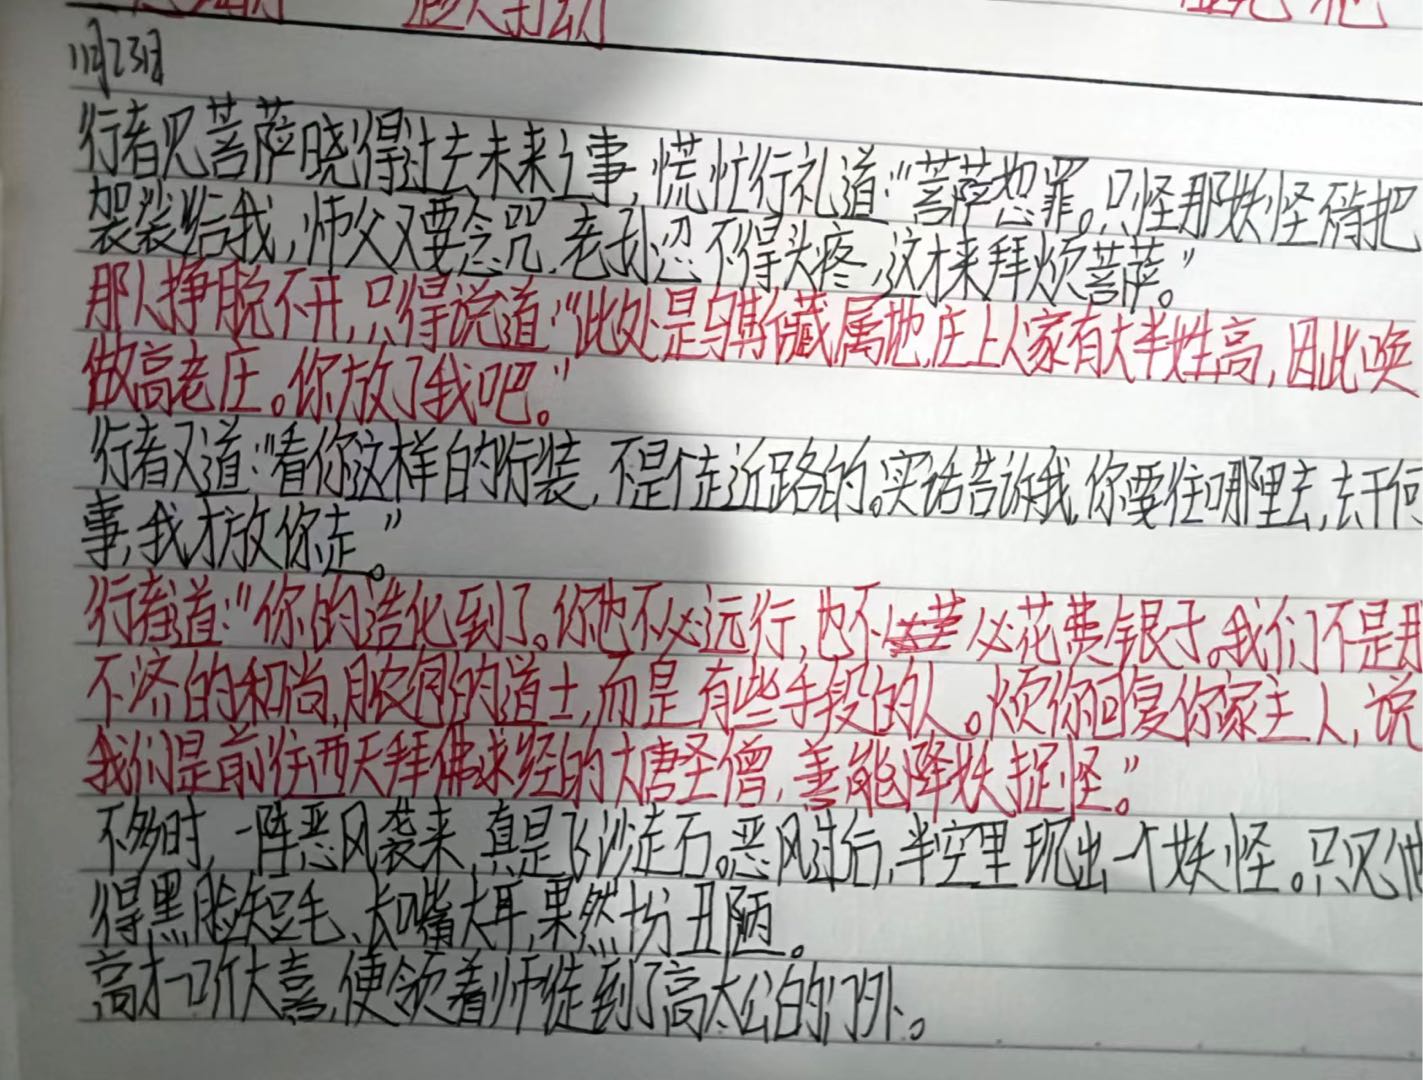 11月23日
行者见菩萨晓得过去未来之事,慌忙行礼道:“菩萨恕罪。只怪那妖怪不肯把
袈裟给我,师父又要念咒,老孙忍不得头疼,这才来拜烦菩萨。”
那人挣脱不开,只得说道:“此处是乌斯藏属地,庄上人家有大半姓高,因此唤
做高老庄。你放了我吧。”
行者又道:“看你这样的行装,不是个走近路的。实话告诉我,你要往哪里去,去干何
事,我才放你走。”
行者道:“你的造化到了。你也不必远行,也不必花费银子。我们不是那
不济的和尚,脓包的道士,而是有些手段的人。烦你回复你家主人,说
我们是前往西天拜佛求经的大唐圣僧,善能降妖捉怪。”
不多时,一阵恶风袭来,真是飞沙走石。恶风过后,半空里现出一个妖怪。只见他
得黑脸短毛、长嘴大耳,果然丑陋。
高才一听大喜,便领着师徒到了高太公的门外。